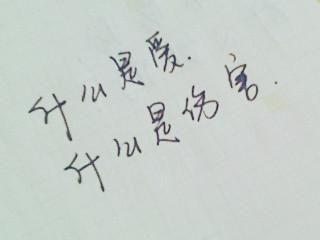 什么是爱.
什么是伤害.